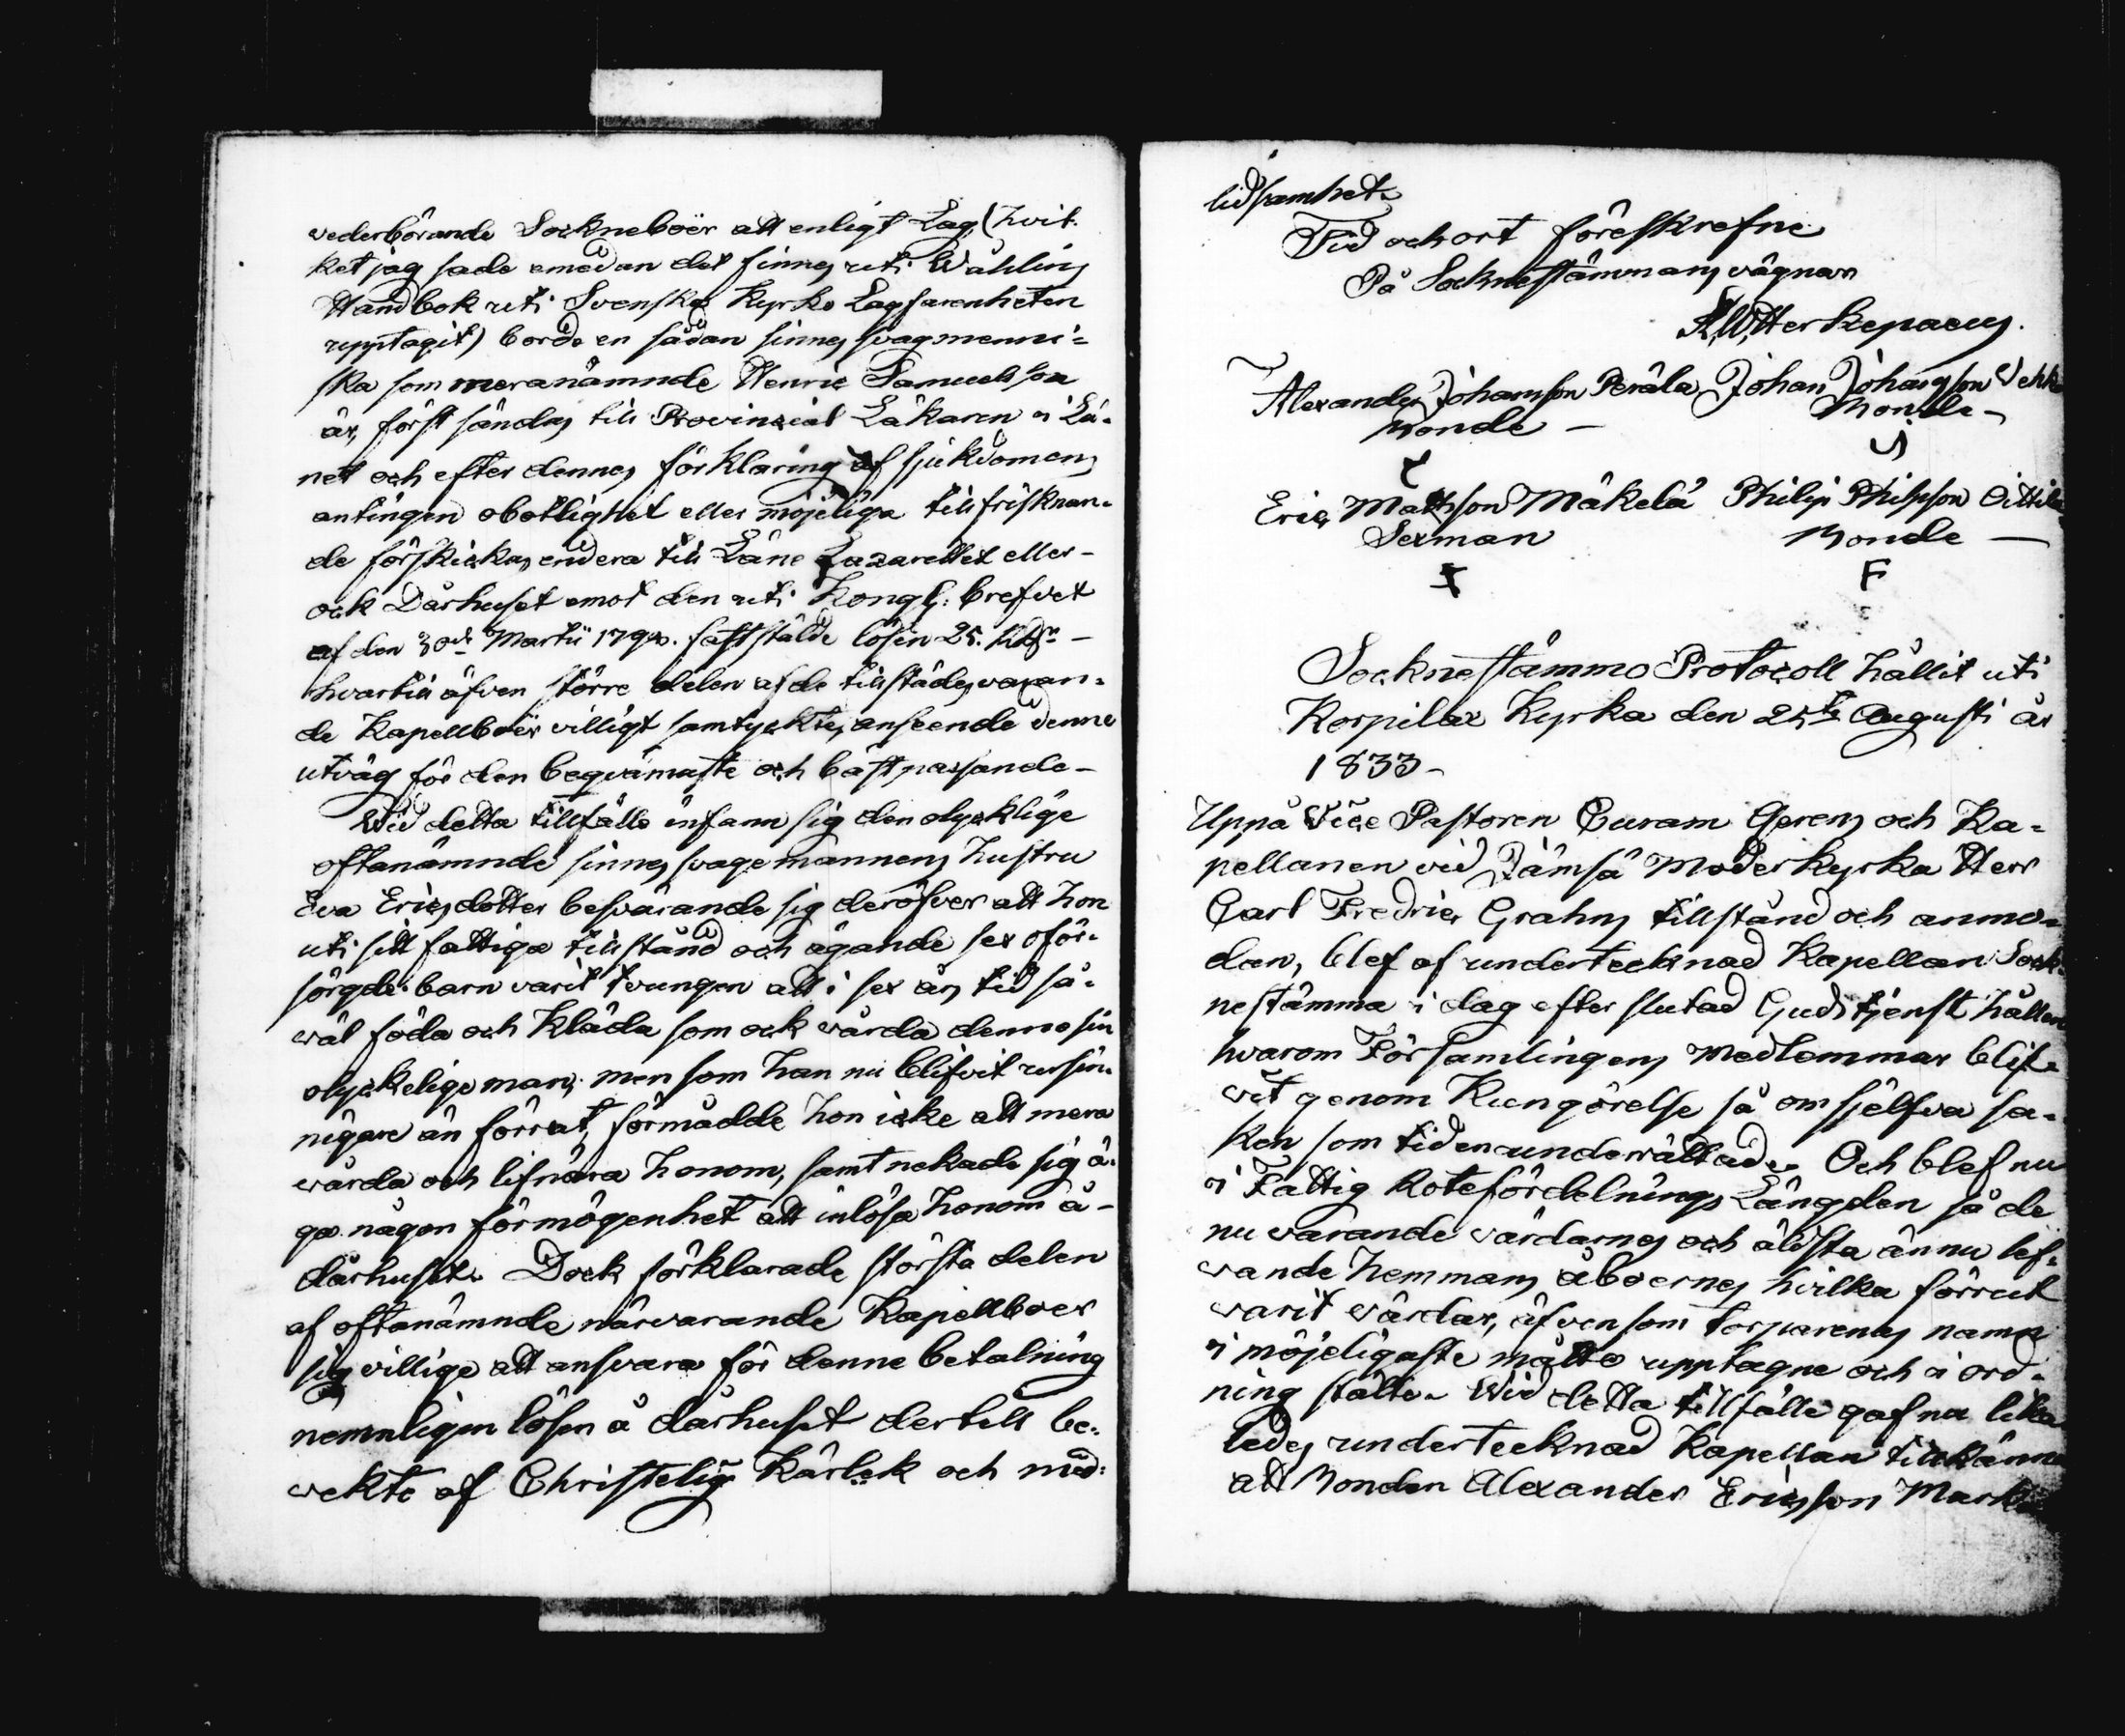 vederbörande Sockneboër att enligt Lag (hvil-
ket jag sade emedan det finnes uti Wåhlins
Handbok uti Svenska Kyrko Lagfarenheten
upptagit) borde en sådan sinnes svag menni-
ska som meranämnde Henric Samuelsson
är, först sändas till Provinzial Läkaren i Lä-
net och efter dennes förklaring af sjukdomens
antingen obotlighet eller möjeliga tillfrisknan-
de förskickas endera till Läne Lazarettet eller
ock Dårhuset emot den uti Kongl: brefvet
af den 30de Martii 179 . fastställde lösen 25.
hvartill äfven större delen af de tillstädesvaran-
de Kapellboër villigt samtyckte, anseende denne
utväg för den beqvämaste och bäst passande –
Wid detta tillfälle infann sig den olycklige
oftanämnde sinnes svage mannens hustru
Eva Ericsdotter besvärande sig deröfver att hon
uti sitt fattiga tillstånd och ägande sex oför-
sörgde barn varit tvungen att i sex års tid så-
väl föda och kläda som ock vårda denne sin
olyckelige man, men som han nu blifvit ursin-
nigare än förrut, förmådde hon icke att mera
vårda och lifnära honom, samt nekade sig ä-
ga någon förmögenhet att inlösa honom å
dårhuset. Dock förklarade största delen
af oftanämnde närvarande Kapellboer
sig villige att ansvara för denne betalning
nemnligen lösen å dårhuset dertill be-
vekte af Christelig Kärlek och med-
lidsamhet.
Tid och ort föreskrefne
På Sockneståmmans vägnar
Alexander Johansson Perälä Johan Johansson
Bonde – Bonde –
Eric Mathsson Mäkelä Philip Philpson
Sexman Bonde –
F
Sockneståmmo Protocoll hållit uti
Korpilax Kyrka den 25te Augusti år
1833 –
Uppå Vice Pastoren Curam Gerens och Ka-
pellanen vid Jämsä Moderkyrka Herr
Carl Fredric Grahns tillstånd och anmo-
dan, blef af undertecknad Kapellan Sock-
nestämma i dag efter slutad Gudstjenst hållen
hvarom Församlingens medlemmar blif-
vit genom Kungörelse så om sjelfva sa-
ken som tiden underrättade. Och blef nu
i Fattig Rotefördelnings Längden så de
nu varande värdarnes och äldsta ännu lef-
vande hemmans åboernes hvilka förrut
varit värdar, äfvensom torparenes namn
i möjeligaste måtto upptagne och i ord-
ning stälte. Wid detta tillfälle gaf nu lika-
ledes undertecknad Kapellan tillkänna
att Bonden Alexander Ericsson